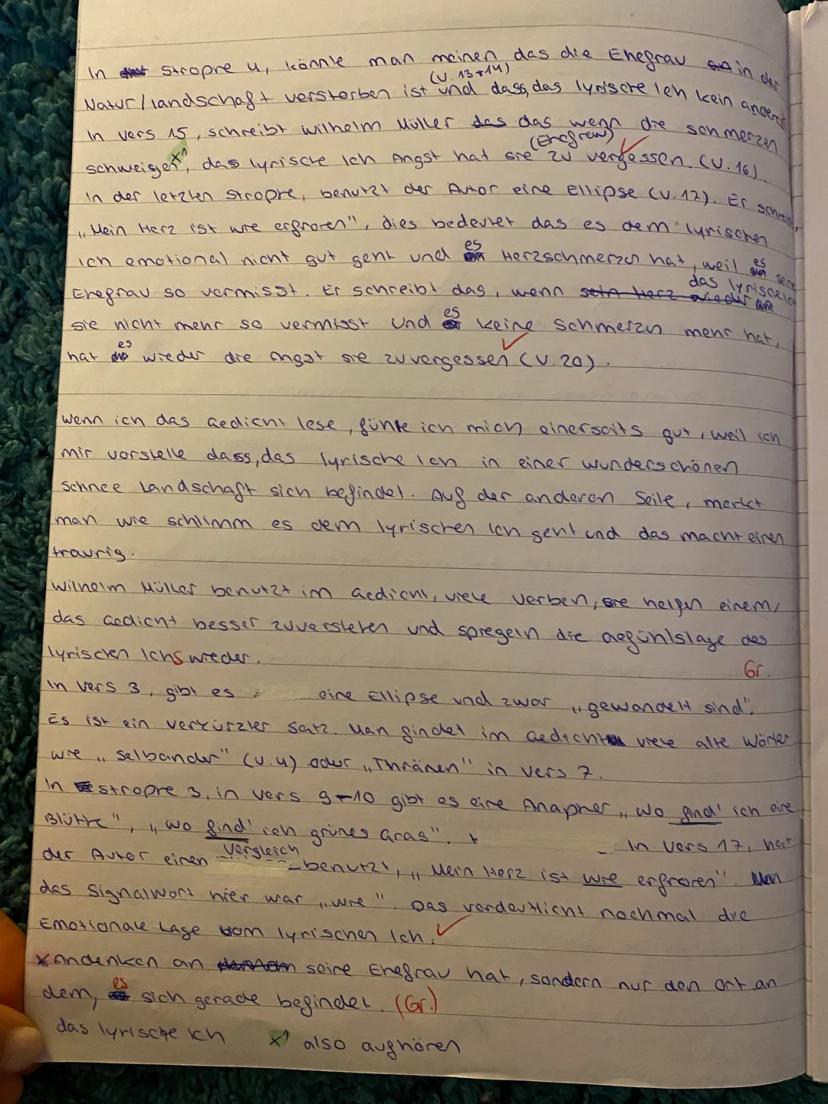 In Strophe 4, könnte man meinen das die Ehefrau in der
(V. 13+14)
Natur/landschaft verstorben ist und dass, das lyrische Ich kein anderes
In Vers 15, schreibt Wilhelm Müller das wenn die schmerzen
(Ehefrau)
schweigen x1, das lyrische Ich Angst hat sie zu vergessen. (V. 16).
In der letzten Strophe, benutzt der Autor eine Ellipse (V. 17). Er schreibt,
„Mein Herz ist wie erfroren", dies bedeutet das es dem lyrischen
Ich emotional nicht gut geht und es Herzschmerzen hat, weil es seine
Ehefrau so vermisst. Er schreibt das, wenn das lyrische Ich
sie nicht mehr so vermisst und es keine Schmerzen mehr hat,
hat es wieder die Angst sie zuvergessen (V. 20).
Wenn ich das Gedicht lese, fühle ich mich einerseits gut, weil ich
mir vorstelle dass, das lyrische Ich in einer wunderschönen
Schnee Landschaft sich befindet. Auf der anderen Seite, merkt
man wie schlimm es dem lyrischen Ich geht und das macht einen
traurig.
Wilhelm Müller benutzt im Gedicht, viele Verben, sie helfen einem,
das Gedicht besser zuverstehen und spiegeln die Gefühlslage des
lyrischen Ichs wieder. Gr.
In Vers 3, gibt es eine Ellipse und zwar „gewandelt sind".
Es ist ein verkürzter Satz. Man findet im Gedicht viele alte Wörter
wie „selbander" (V. 4) oder „Thränen" in Vers 7.
In Strophe 3, in Vers 9-10 gibt es eine Anapher „wo find' ich eine
Blüthe", „wo find' ich grünes Gras". In Vers 17, hat
der Autor einen Vergleich benutzt, „Mein Herz ist wie erfroren".
das Signalwort hier war „wie". Das verdeutlicht nochmal die
Emotionale Lage vom lyrischen Ich.
x Andenken an seine Ehefrau hat, sondern nur den Ort an
dem, es sich gerade befindet. (Gr.)
das lyrische Ich x1 also aufhören